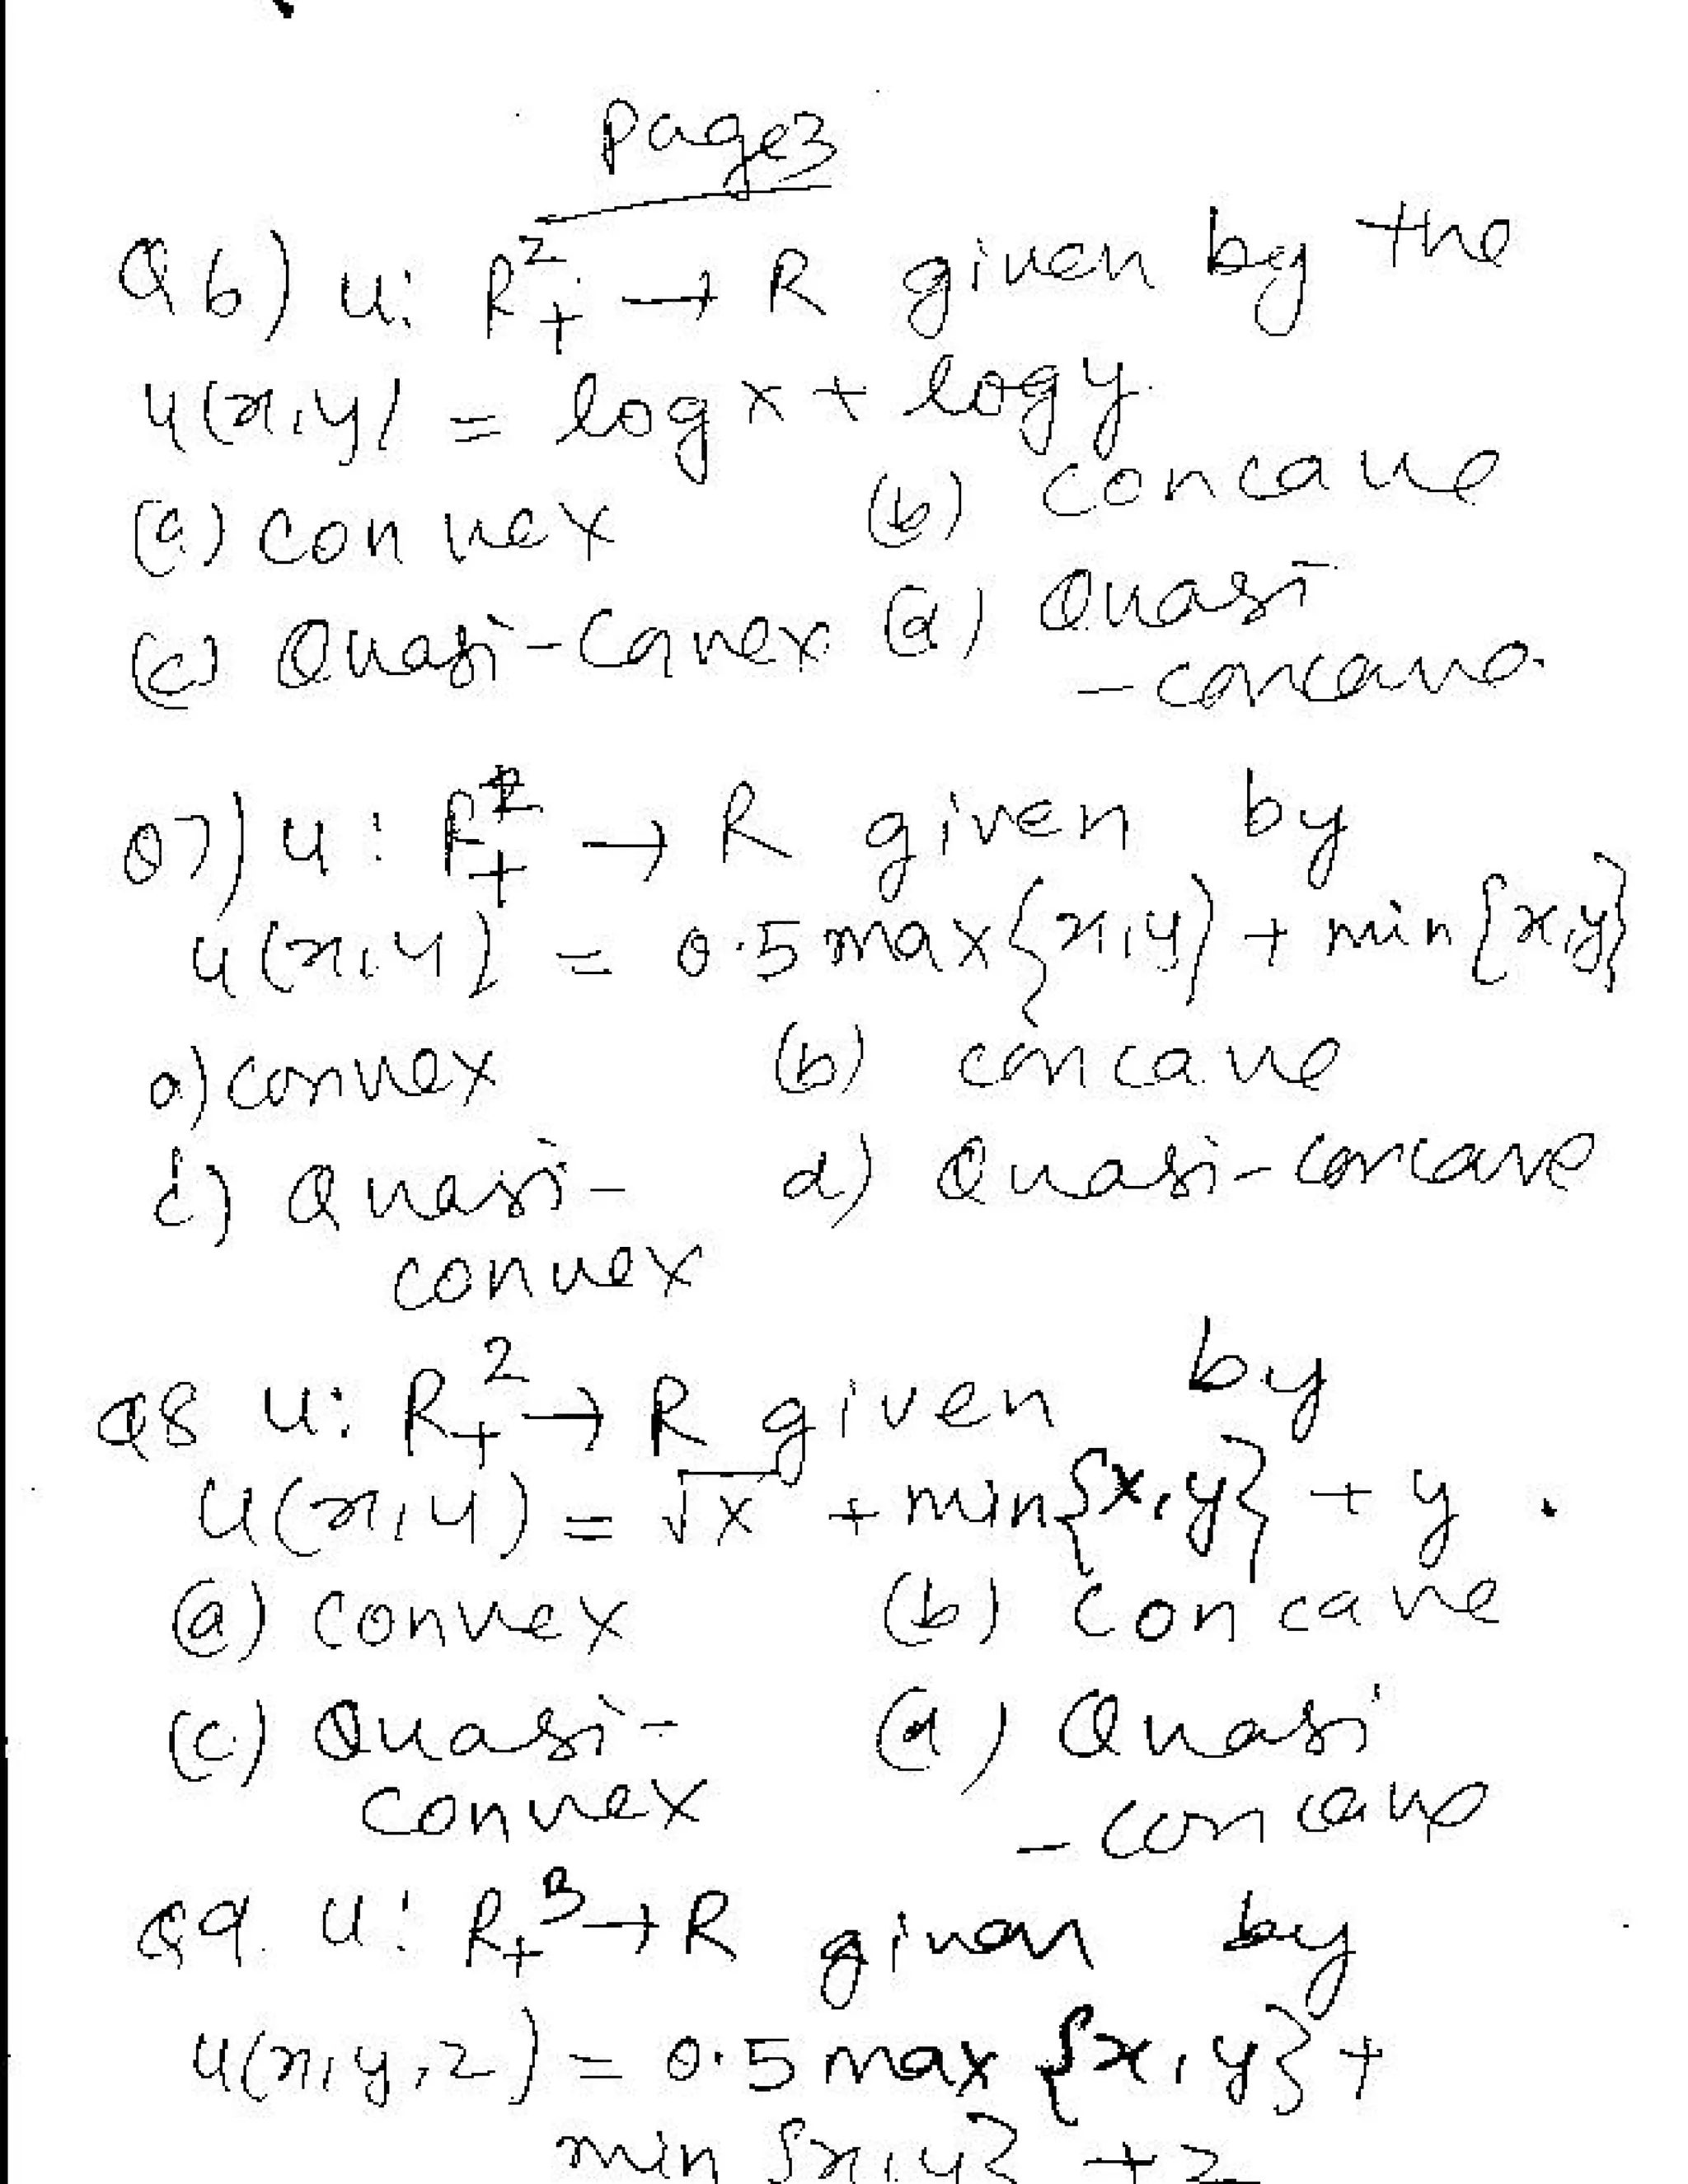 Page3
Q6) u: R²₊ → R given by the
u(x,y) = log x + log y
(a) convex (b) concave
(c) Quasi-Canex (d) Quasi
-concave.
Q7) u: R²₊ → R given by
u(x,y) = 0.5 max{x,y) + min{x,y}
a) convex (b) concave
c) Quasi- d) Quasi-concave
convex
Q8 u: R₊² → R given by
u(x,y) = √x + min{x,y} + y.
(a) convex (b) concave
(c) Quasi- (d) Quasi
convex -concave
Q9. u: R₊³ → R given by
u(x,y,z) = 0.5 max {x,y} +
min {x,y} + z